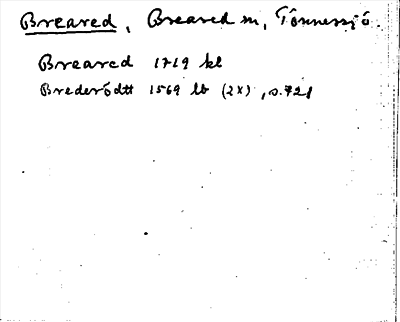 Breared, Breared m, Tönnersjö.
Breared 1719 kl
Brederödtt 1569 lb (2x), s.721